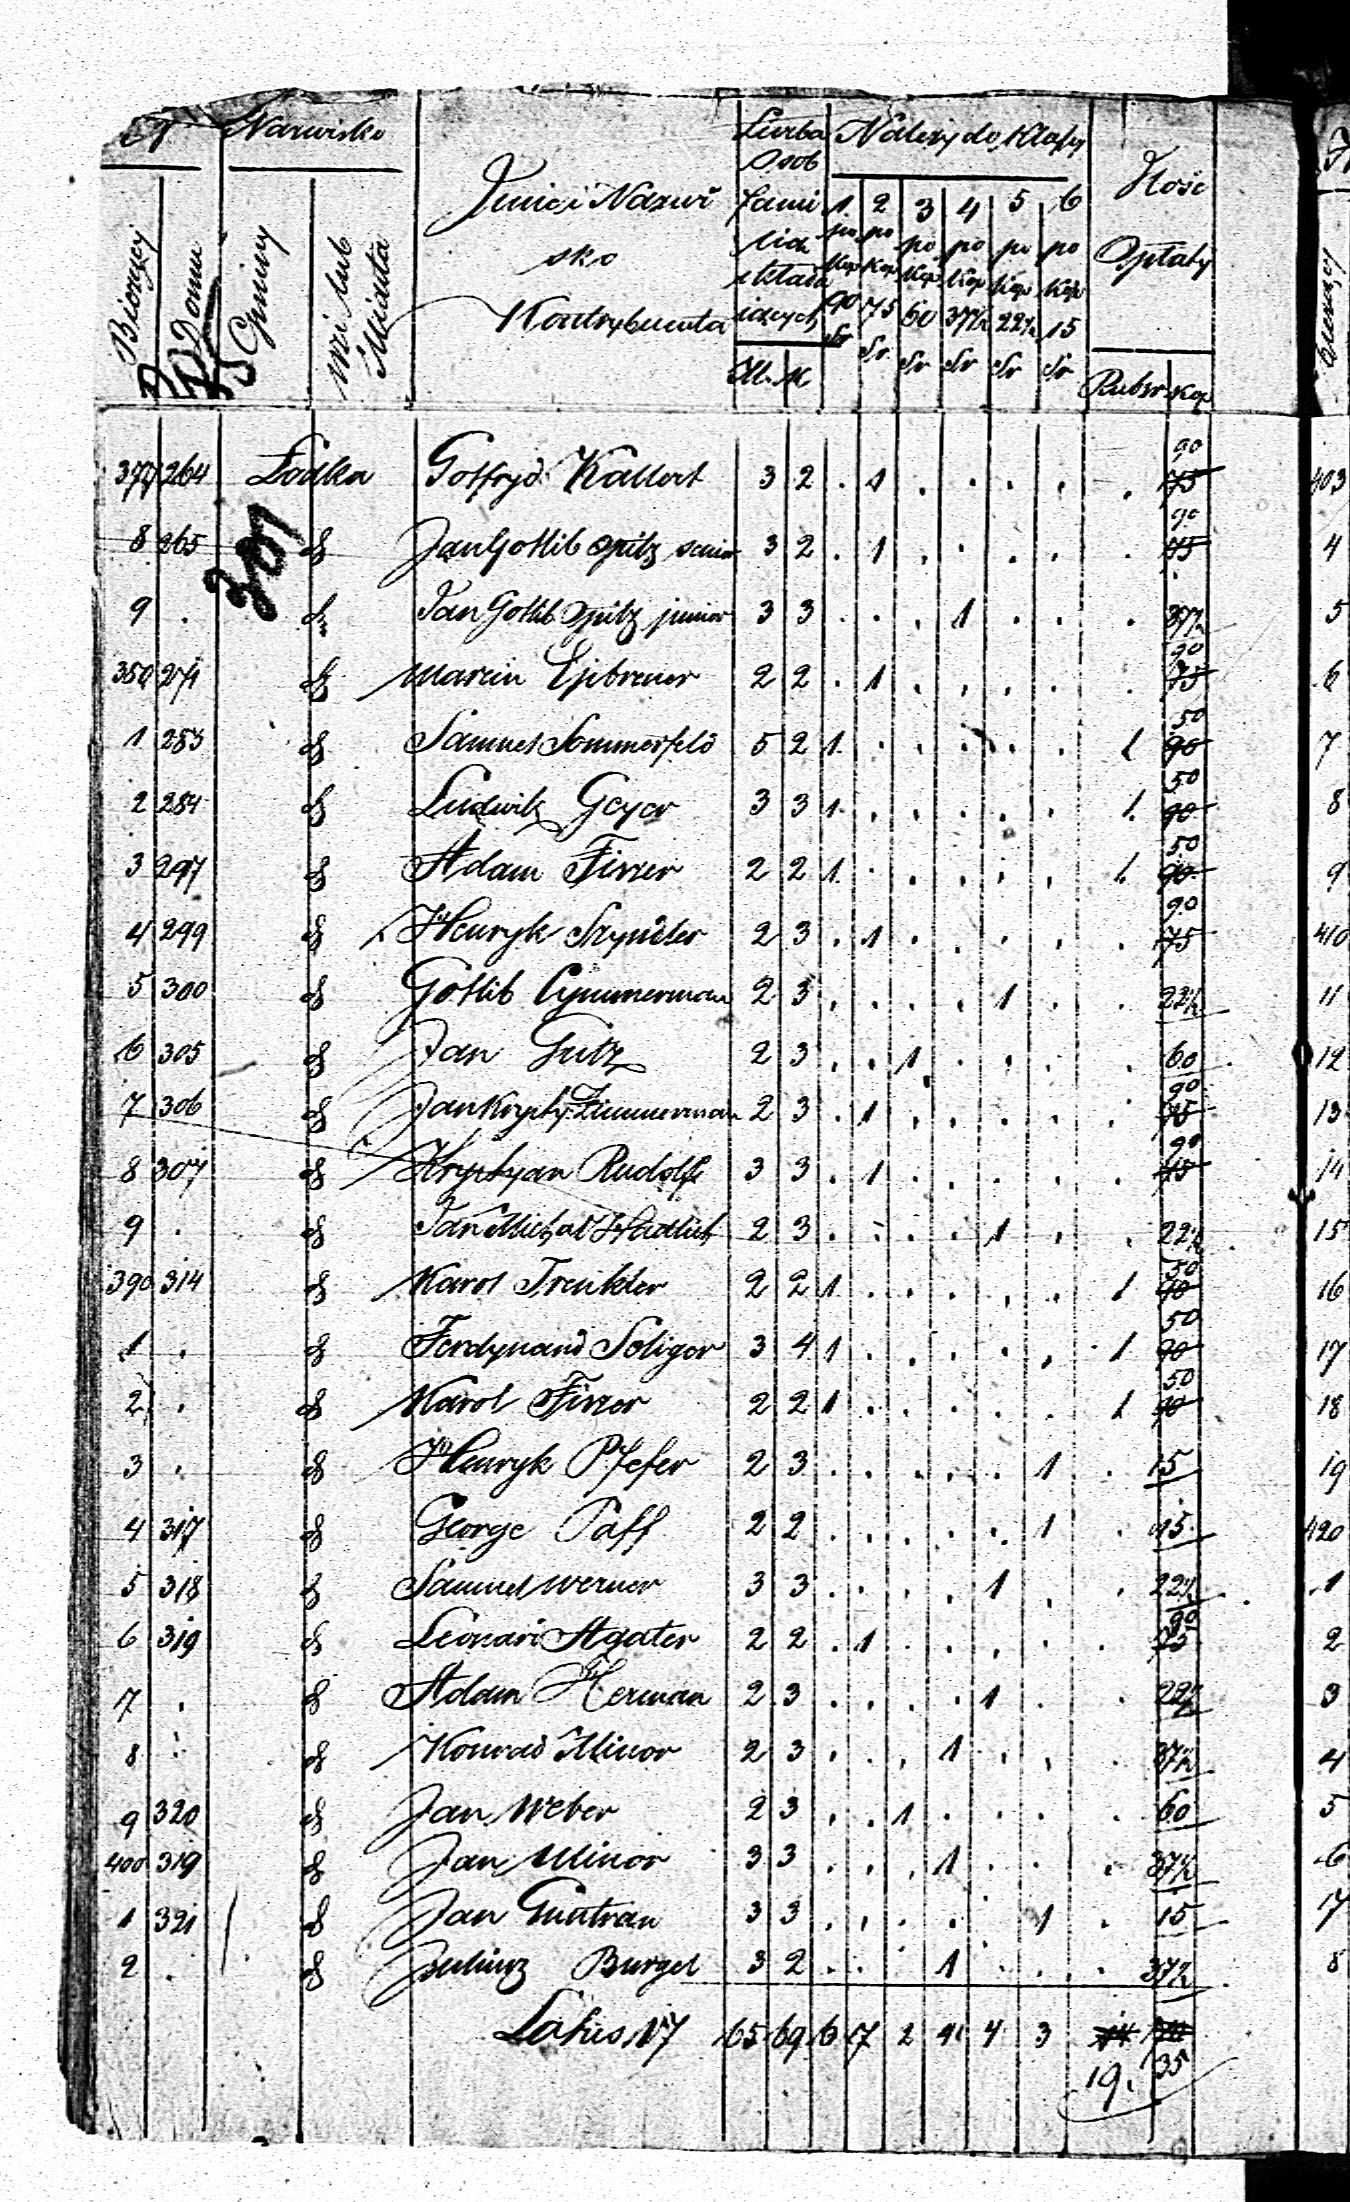 Nazwisko
Liczba Należy do Klasy
Osob
Ilość
Imie i Nazwi fami 1. 2 3 4 5 6
po po po po po po
sko
Opłaty
Kop Kop Kop Kop Kop Kop
Kontrybuenta 90 75 60 37½ 22½ 15
Sr Sr Sr Sr Sr Sr
M. K. Rubsr Kop
Bieżący
Domu
Gminy
wsi lub
Miasta
301
90
377 264 Łódka Gotfryd Kallert 3 2 . 1 . . . . . 75
90
8 265 d Jan Gottlib Opitz senior 3 2 . 1 . . . . . 75
9 . d Jan Gottlib Opitz junior 3 3 . . . 1 . . . 37½
90
380 271 d Marcin 2 2 . 1 . . . . . 75
50
1 283 d Samuel Sommerfeld 5 2 1 . . . . . 1 90
50
2 284 d Ludwik Geyer 3 3 1 . . . . . 1. 90
50
3 297 d Adam Fiszer 2 2 1 . . . . . 1. 90
90
4 299 d Henryk Szyndler 2 3 . 1 . . . . . 75
5 300 d Gotlib Cymmerman 2 3 . . . . 1 . . 22½
6 305 d Jan Gutz 2 3 . . 1 . . . 60
90
7 306 d Jan Krysty Zimmerman 2 3 . 1 . . . . . 75
90
8 307 d Krystyan Rudolf 3 3 . 1 . . . . . 75
9 . d Jan Michał Hadlich 2 3 . . . . 1 . . 22½
50
390 314 d Karol Trenkler 2 2 1 . . . . . 1 90
50
1 . d Ferdynand Seliger 3 4 1 . . . . . 1 90
50
2 . d Karol Fiszer 2 2 1 . . . . . 1 90
3 . d Henryk Pfefer 2 3 . . . . . 1 . 15
4 317 d George Paff 2 2 . . . . . 1 . 15
5 318 d Samuel Werner 3 3 . . . . 1 . 22½
90
6 319 d Leonard Agater 2 2 . 1 . . . . . 75
7 . d Adam Herman 2 3 . . . . 1 . . 22½
8 . d Konrad Minor 2 3 . . . 1 . . 37½
9 320 d Jan Weber 2 3 . . 1 . . . 60
400 319 d Jan Minor 3 3 . . . 1 . . . 37½
1 321 d Jan Guntran 3 3 . . . . . 1 . 15
2 . d Juliusz Burgel 3 2 . . . 1 . . . 37½
Latus 17 65 69 6 7 2 4 4 3
19. 35
403
4
5
6
7
8
9
410
11
12
13
14
15
16
17
18
19
420
1
2
3
4
5
6
17
8